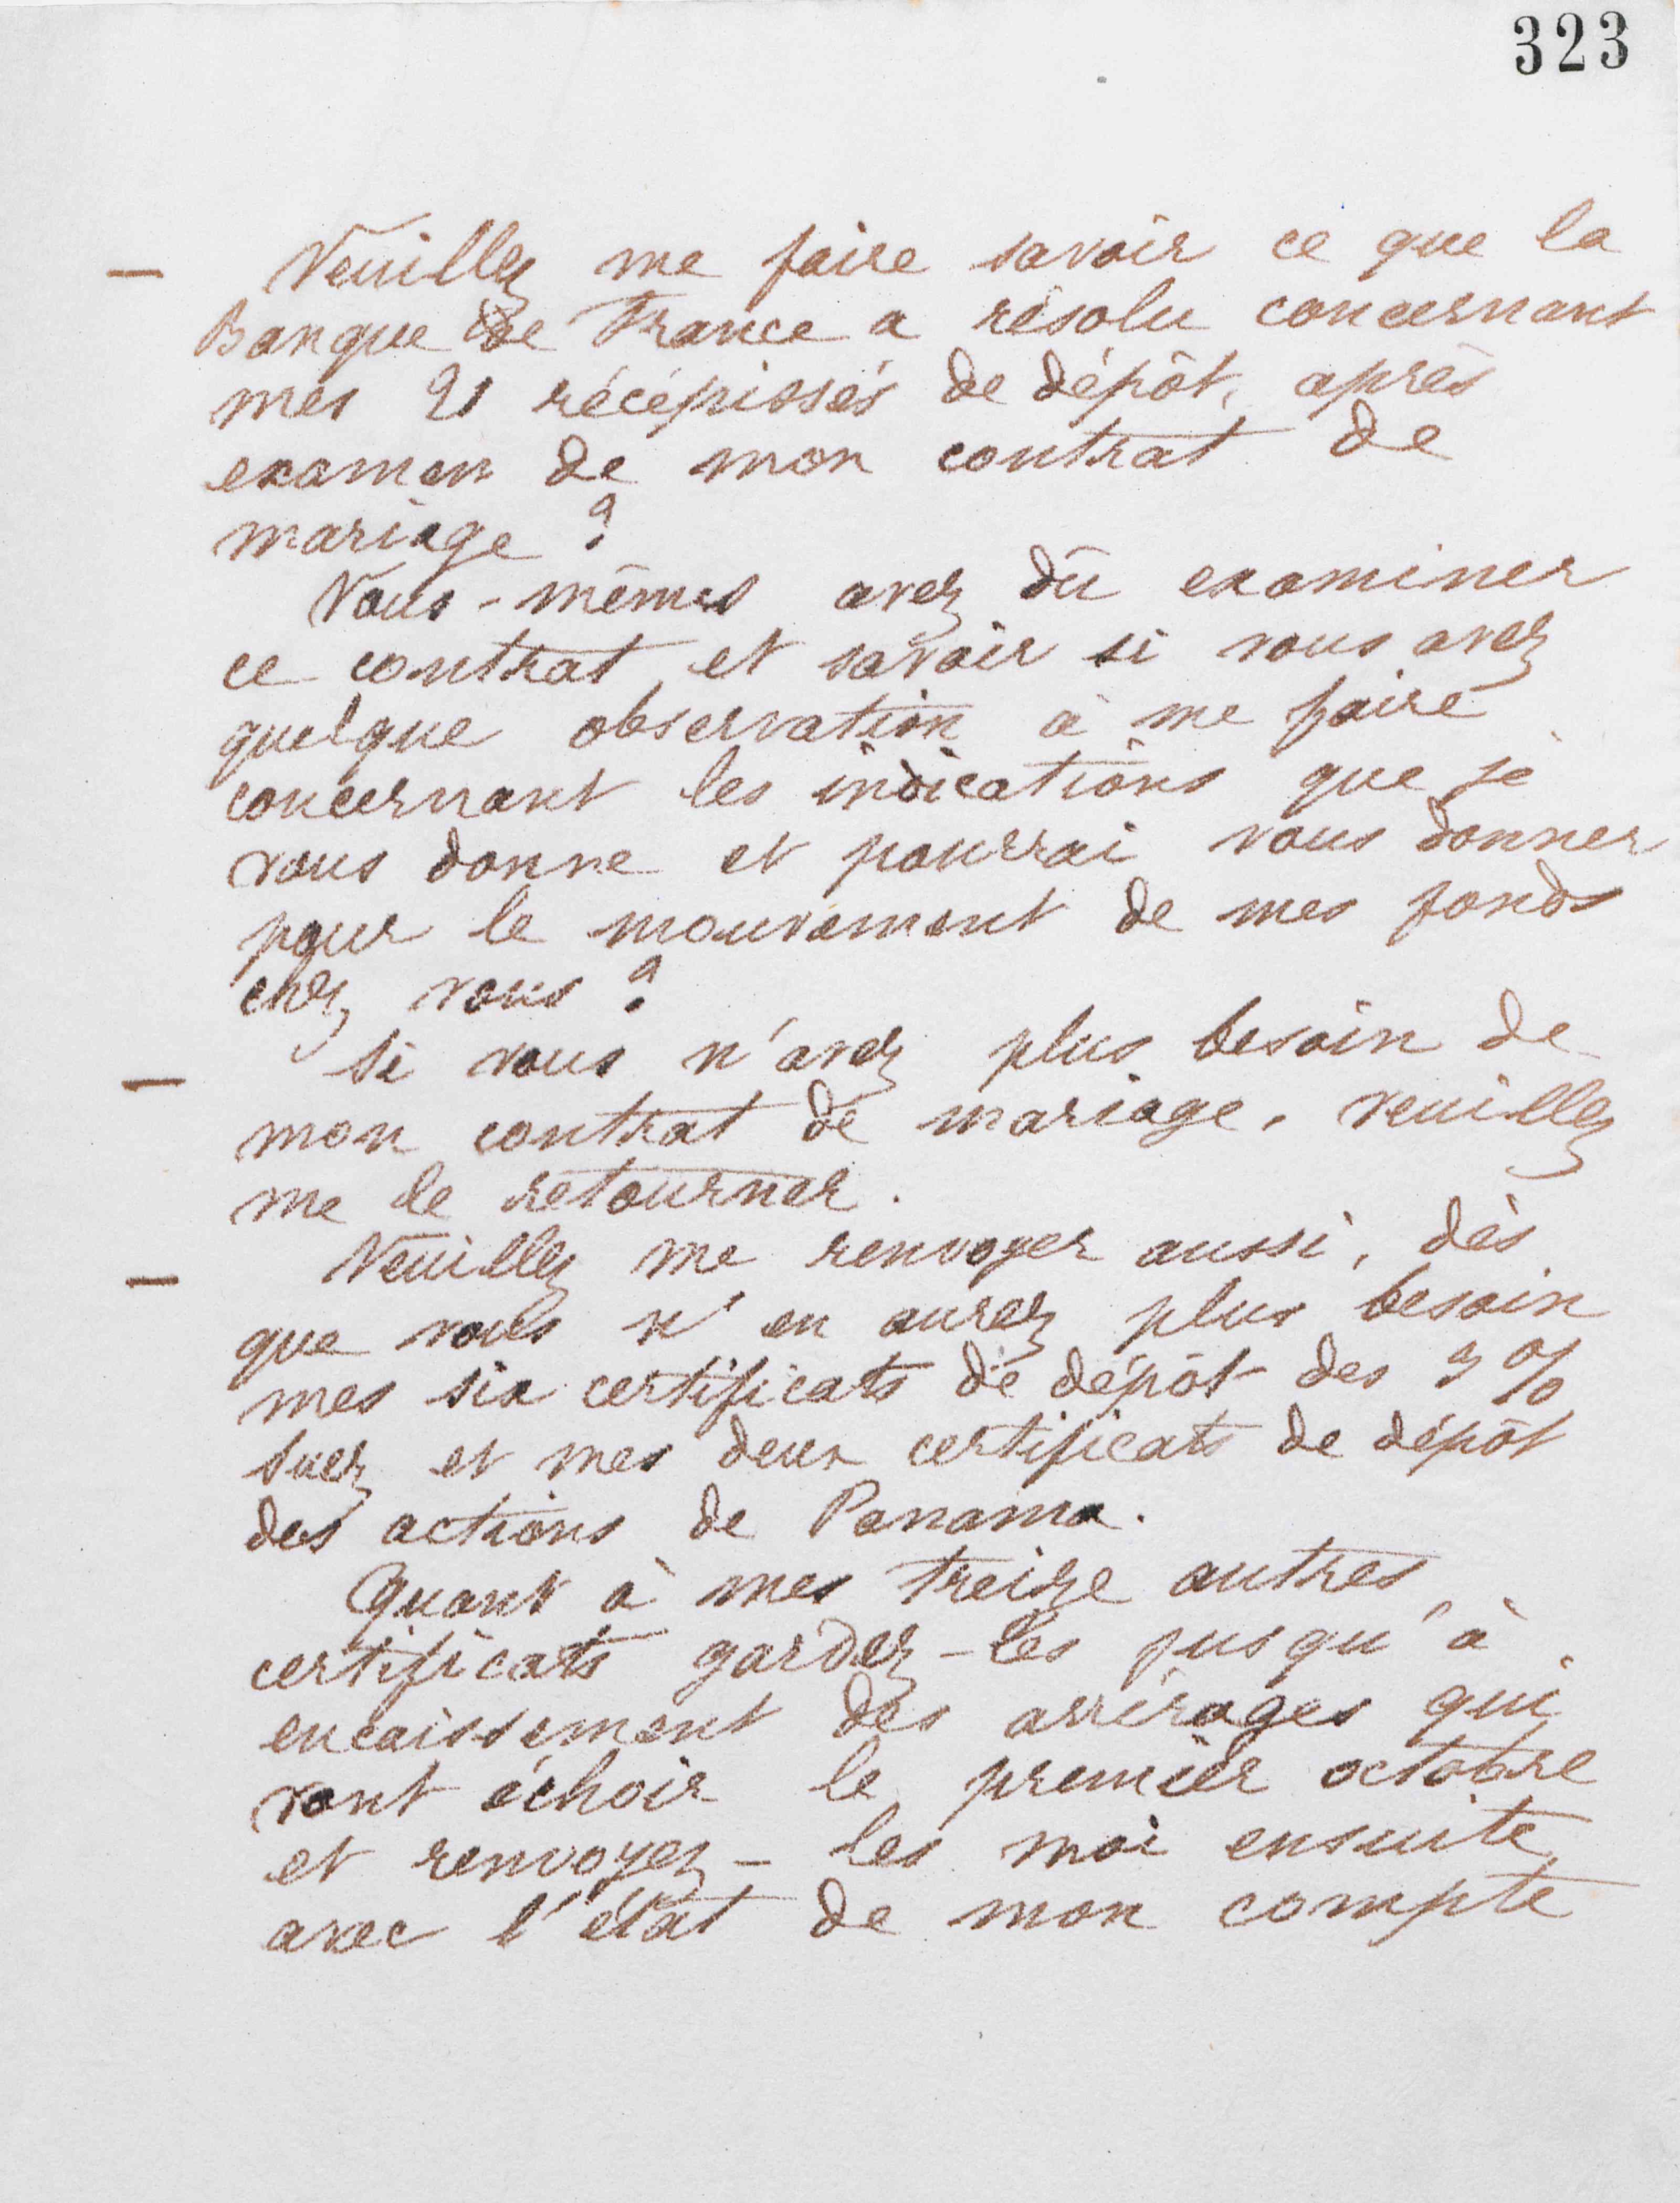 323
— Veuillez me faire savoir ce que la
Banque de France a résolu concernant
mes 21 récépissés de dépôt, après
examen de mon contrat de
mariage ?
Vous-mêmes avez dû examiner
ce contrat et savoir si vous avez
quelque observation à me faire
concernant les indications que je
vous donne et pourrai vous donner
pour le mouvement de mes fonds
chez vous ?
— Si vous n'avez plus besoin de
mon contrat de mariage, veuillez
me le retourner.
— Veuillez me renvoyer aussi, dès
que vous n'en aurez plus besoin
mes six certificats de dépôt des 3 %
Suez et mes deux certificats de dépôt
des actions de Panama.
Quant à mes treize autres
certificats gardez-les jusqu'à
encaissement des arrérages qui
vont échoir le premier octobre
et renvoyez-les moi ensuite
avec l'état de mon compte